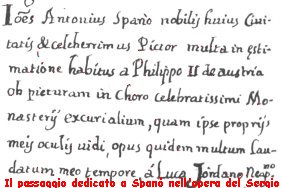 Ioẽs Antonius Spanò nobilis huius Ciui
tatis, & celeherrimus Pictor multa in ęsti-
matione habitus a Philippo II de austria
ob picturam in Choro celebratissimi Mo-
nasterÿ excurialium, quam ipse proprÿs
meis oculis uidi, opus quidem multum lau-
datum meo tempore, á Luca Jordano Neap.no
Il passaggio dedicato a Spanò nell'opera del Sergio